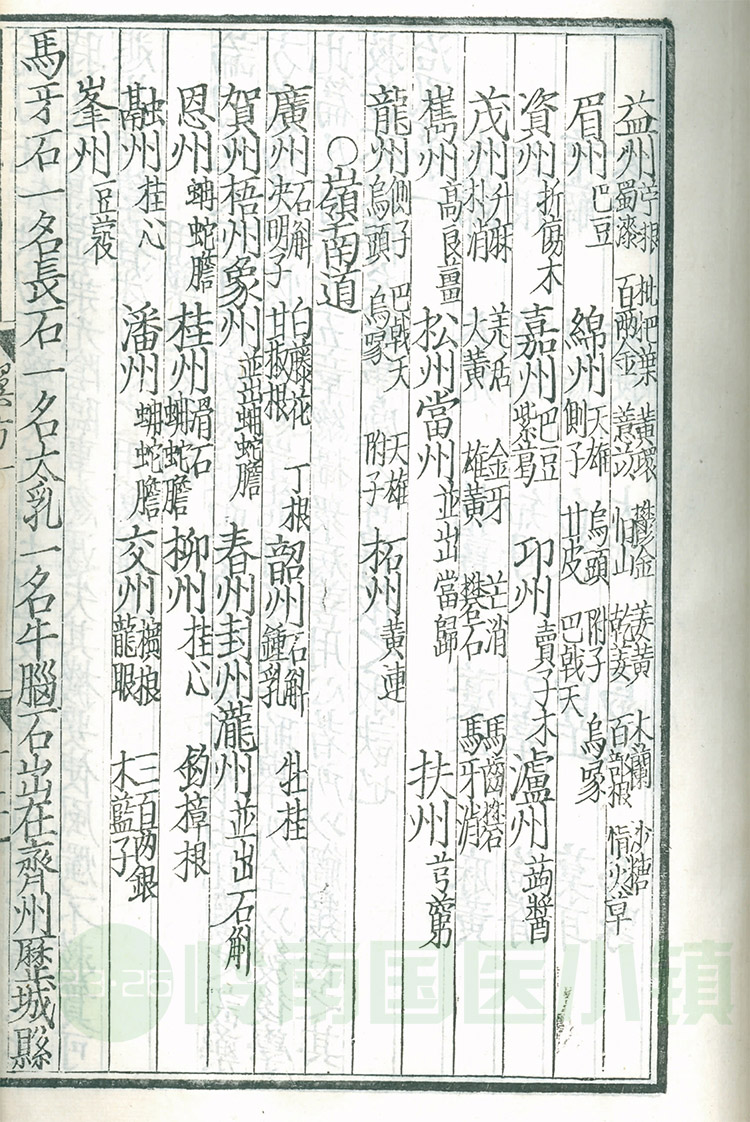 益州苧根 枇杷葉 黃環 鬱金 姜黃 木蘭 沙糖 蜀漆 百兩金 薏苡 恒山 乾姜 百部根 慎火草
眉州巴豆 綿州天雄 烏頭 附子 烏喙 側子 甘皮 巴戟天
資州折傷木 嘉州巴豆 紫葛 邛州賣子木 瀘州蒟醬
茂州升麻 羌活 金牙 芒消 馬齒礬 朴消 大黃 雄黃 礬石 馬牙消
巂州高良薑 松州當州並出當歸 扶州芎藭
龍州側子 巴戟天 天雄 烏頭 烏喙 附子 柘州黃連
○嶺南道
廣州石斛 白藤花 丁根 決明子 甘椒根 韶州石斛 牡桂 鍾乳
賀州梧州象州並出蚺蛇膽 春州封州瀧州並出石斛
恩州蚺蛇膽 桂州滑石 蚺蛇膽 柳州桂心 釣樟根
融州桂心 潘州蚺蛇膽 交州檳榔 三百兩銀 龍眼 木藍子
峯州豆蔻
馬牙石一名長石一名大乳一名牛腦石出在齊州歷城縣
翼方一
岭南国医小镇